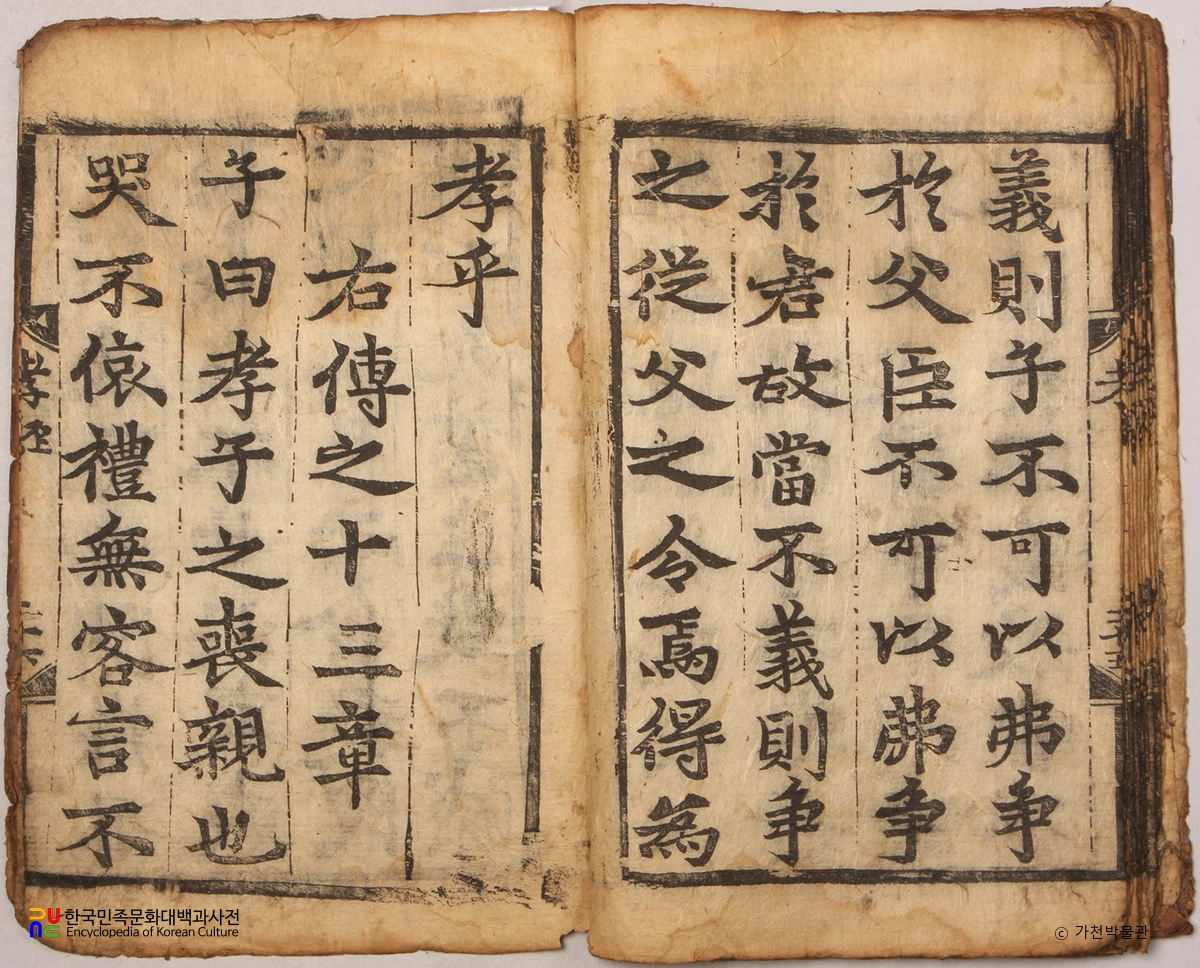 義則子不可以弗争
於父臣不可以弗争
於君故當不義則争
之從父之令焉得為
孝乎
右傳之十三章
子曰孝子之喪親也
哭不偯禮無容言不
한국민족문화대백과사전
Encyclopedia of Korean Culture
© 가천박물관